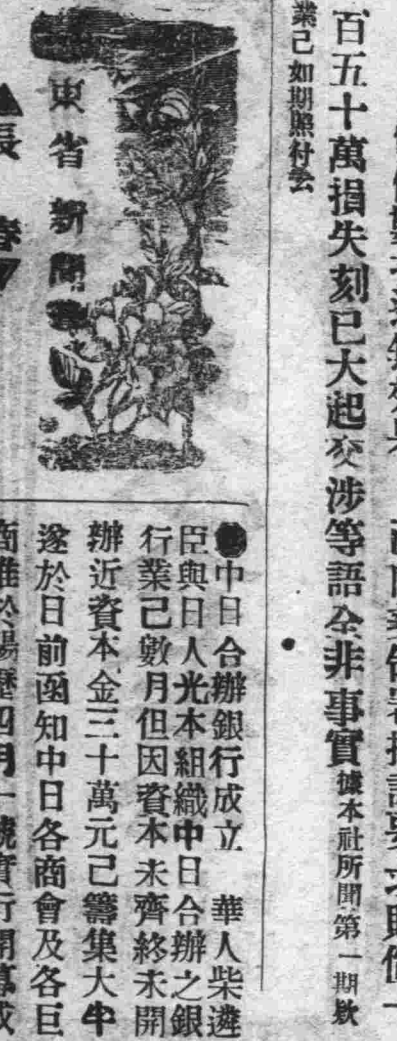 百五十萬損失刻已大起交涉等語全非事實據本社所聞第一期欵
業已如期照付云
東省新聞
▲長春▼
●中日合辦銀行成立　華人柴遴
臣與日人光本組織中日合辦之銀
行業已數月但因資本未齊終未開
辦近資本金三十萬元已籌集大半
遂於日前函知中日各商會及各巨
商准於陽歷四月一號實行開幕